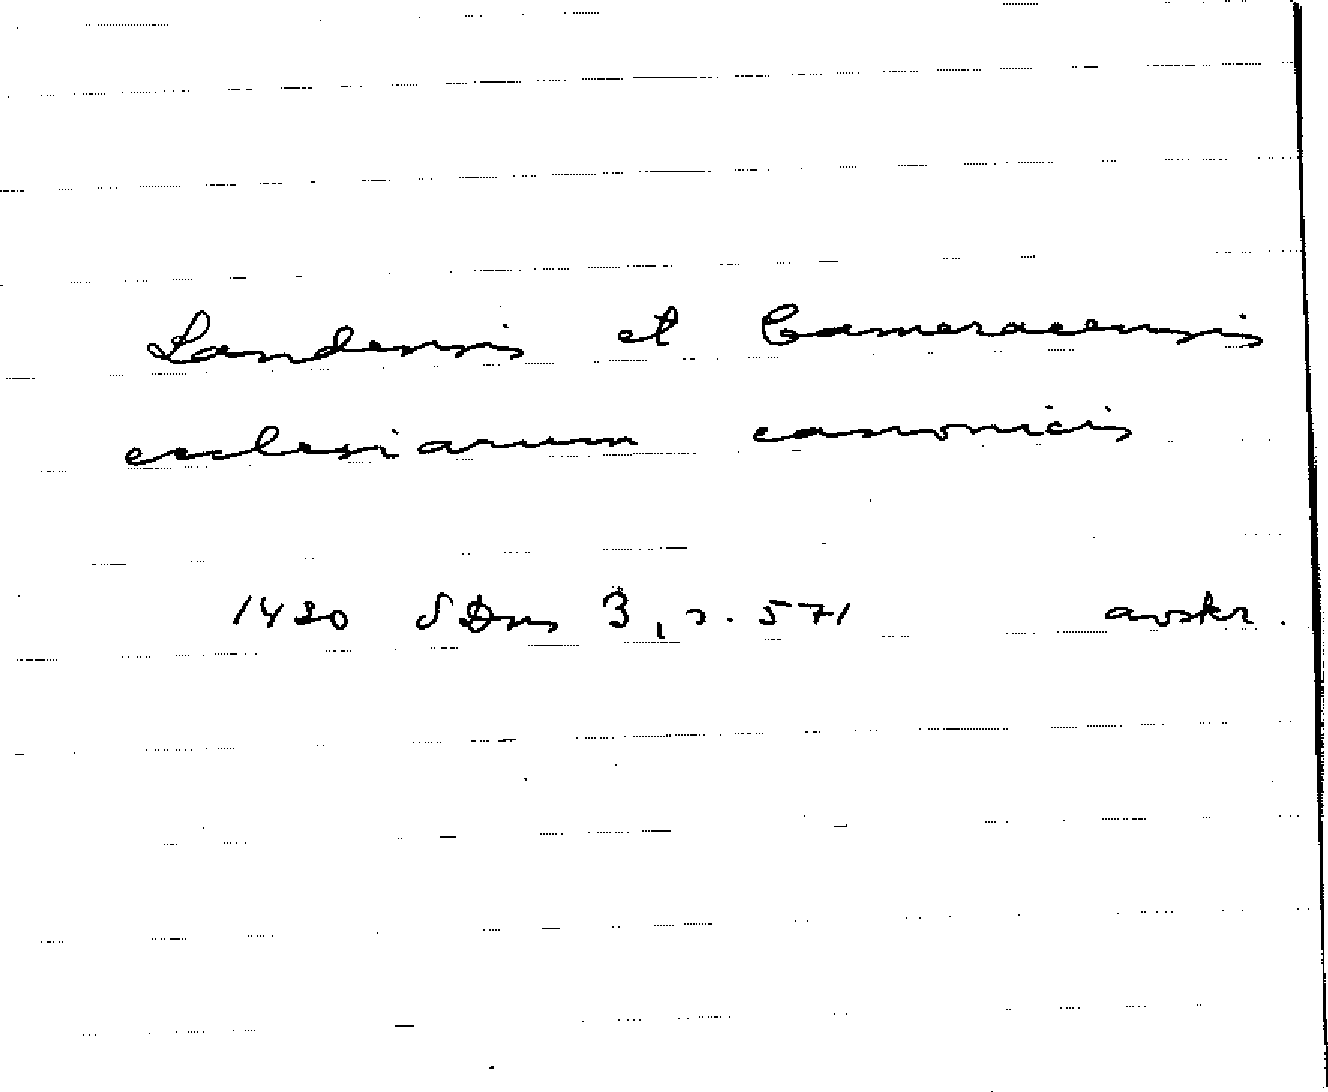 Landensis et Cameracensis
ecclesiarum canonicis
1420 SDns 3, s. 571 avskr.